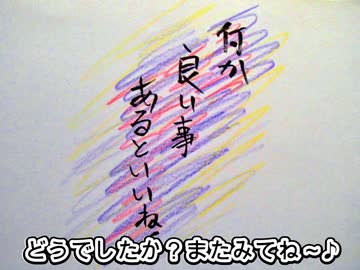 何か
良い事
あるといいね
どうでしたか？またみてね~♪